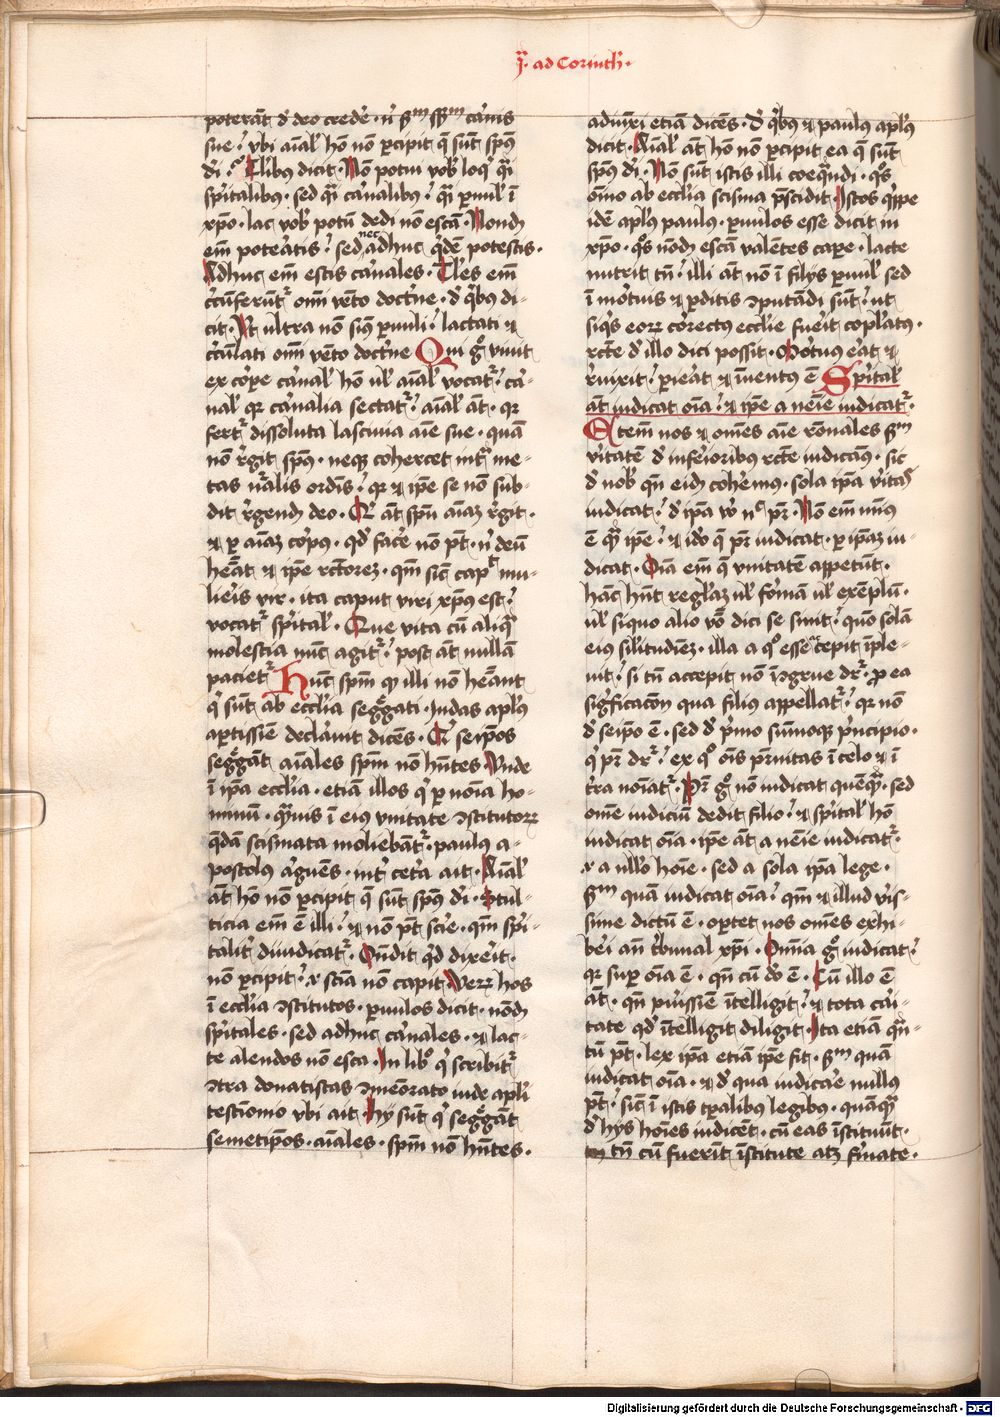 ja. ad Corinth.
poterāt d' deo crede' . n' s'm spm carnis
sue . vbi aīal' hō nō ꝑcipit q̄ sūt spūs
di . Tlibus dicit . Nō potui vob' loq' q̄i
spiritalibus . sed q̄i carnalibus . q̄i ꝑuul' ī
xp̄o . lac vob' potū dedi nō escā . Nondū
em̄ poteratis . sed nec adhuc q'dē potestis .
Adhuc em̄ estis carnales . Tales em̄
circūferūtr omī vēto doctrine . d' q'bus di-
cit . Vt ultra nō sim' ꝑuuli . lactati et
circūlati omī vēto doctrine Qui g° viuit
ex corpe carnal' hō ul' aīal' vocatr . car-
nal' qr carnalia sectatr . aīal' āt . qr
fertr dissoluta lasciuia aīe sue . quā
nō rgit spūs . neqꝫ cohercet intra me-
tas nālis ordīs . qr et ipse se nō sub-
dit rgendū deo . Qi āt spū aīaꝫ rgit .
et ꝑ aīaꝫ corpus . qd' face' nō pt . n' deū
heāt et ipse rctoreꝫ . qm sic caput mu-
lieris vir . ita caput viri xp̄us est .
vocatr spirital' . Que vita cū aliq'
molestia nūc agitr . post āt nullā
pacietr Hunc spm qꝫ illi nō heānt
q' sūt ab eccl'ia seg'gati . Iudas apl'us
aptissīe declarauit dicēs . Qi seipos
seg'gāt aīales spm nō hn̄tes . Unde
ī ipa eccl'ia . etiā illos q' ꝑ noīa ho-
minū . q̄uis ī eius vnitate ꝯstitutorꝝ
q̄dā scismata moliebātr . paulus a-
postolus arguēs . int' cetera ait . Aīal'
āt hō nō ꝑcipit q̄ sūt spūs di . Stul-
ticia em̄ ē illi . et nō pt scire . qm spi-
talit' diiudicatr . Oñdit qd dixerit .
nō ꝑcipit . i' sciam nō capit . Verꝝ hos
ī eccl'ia ꝯstitutos . ꝑuulos dicit . nōdū
spiritales . sed adhuc carnales . et lac-
te alendos nō esca . In lib° q' scribitr
ꝯtra donatistas ꝯmeōrato iude apl'i
testīonio vbi ait . Hij sūt q' seg'gāt
semetip̄os . aīales . spm nō hn̄tes .
adiūxi etiā dicēs . d' q'bus et paulus apl'us
dicit . Aīal' āt hō nō ꝑcipit ea q̄ sūt
spūs di . Nō sūt istis illi coeq̄ndi . q's
oīno ab eccl'ia scisma p̄scidit . Istos q'ppe
idē apl'us paulus . ꝑuulos esse dicit in
xp̄o . q's nōdū escā valētes cape . lacte
nutrit tn̄ . illi āt nō ī filijs ꝑuul' sed
ī mortuis et ꝑditis ꝯputādi sūt . ut
siq's eorꝝ correctus ecclie fuerit coplatus .
rcte d' illo dici possit . Mortuus erat et
rvixit . ꝑierat et inuentus ē Spirital'
āt iudicat oīa . et ipse a neīe iudicatr .
Etem̄ nos et omēs aīe rōnales s'm
v'itatē d' inferioribus rcte iudicam' . sic
d' nob' qn̄ eidē coherem' . sola ipa v'itas
iudicat . d' ipa v° n° pr . Nō em̄ min'
ē q̄ ipe . et ido q̄ pr iudicat . ꝑ ipaꝫ iu-
dicat . Oīa em̄ q̄ vnitatē appetūt .
hāc hn̄t reglaꝫ ul' formā ul' exēplū .
ul' siquo alio v° dici se sinit . quō solā
eius silitudineꝫ . illa a q° esse cepit īple-
uit . si tn̄ accepit nō īꝯgrue dr . ꝑ ea
sig'ficacōn qua filius appellatr . qr nō
d' seipo ē . sed d' p'mo sūmoqꝫ p'ncipio .
q' pr dr . ex q° oīs pr̄nitas ī celo et ī
t'ra noīatr . Pr g° nō iudicat quēq̄ . sed
omē iudiciū dedit filio . et spirital' hō
iudicat oīa . ipe āt a neīe iudicatr .
i' a ullo hoīe . sed a sola ipa lege .
s'm quā iudicat oīa . qm et illud v'is-
sime dictū ē . oportet nos omēs exhi-
beri an̄ t'bunal xp̄i . Omnia g° iudicat .
qr sup oīa ē . qn̄ cū do ē . Cū illo ē
āt . qn̄ purissīe ītelligit . et tota cari-
tate qd' ītelligit diligit . Ita etiā q̄n-
tū pt . lex ipa etiā ipe fit . s'm quā
iudicat oīa . et d' qua iudicare nullus
pt . sic ī istis tꝑalibus legibus . quāq̄
d' hijs hoīes iudicēt . cū eas īstituūt .
tn̄ cū fuerīt īstitute atqꝫ firmate .
Digitalisierung gefördert durch die Deutsche Forschungsgemeinschaft - DFG